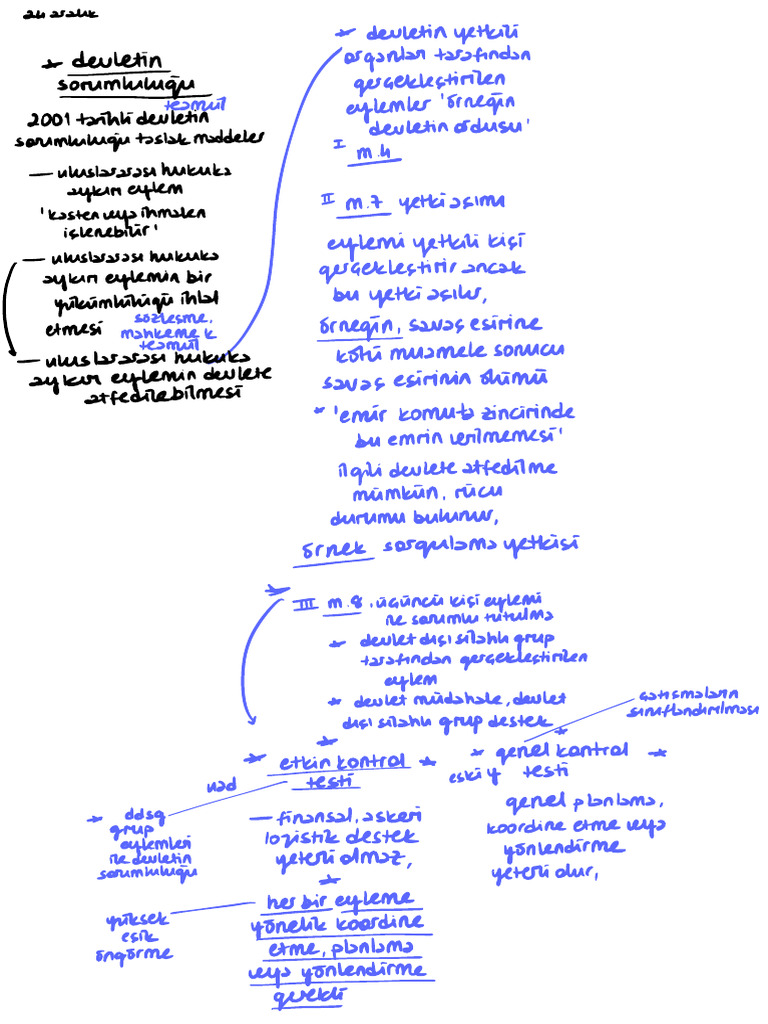 24 aralık
* devletin
sorumluluğu
teamül
2001 tarihli devletin
sorumluluğu taslak maddeler
— uluslararası hukuka
aykırı eylem
'kasten veya ihmalen
işlenebilir'
— uluslararası hukuka
aykırı eylemin bir
yükümlülüğü ihlal
etmesi
sözleşme,
mahkeme k
teamül
— uluslararası hukuka
aykırı eylemin devlete
atfedilebilmesi
* devletin yetkili
organları tarafından
gerçekleştirilen
eylemler 'örneğin
devletin ordusu'
I
m.4
II m.7 yetki aşımı
eylemi yetkili kişi
gerçekleştirir ancak
bu yetki aşılır,
örneğin, savaş esirine
kötü muamele sonucu
savaş esirinin ölümü
* 'emir komuta zincirinde
bu emrin verilmemesi'
ilgili devlete atfedilme
mümkün, rücu
durumu bulunur,
örnek sorgulama yetkisi
III m.8, üçüncü kişi eylemi
ile sorumlu tutulma
* devlet dışı silahlı grup
tarafından gerçekleştirilen
eylem
* devlet müdahale, devlet
dışı silahlı grup destek
çatışmaların
sınıflandırılması
* etkin kontrol *
testi
uad
* genel kontrol *
eski y testi
* ddsg
grup
eylemleri
ile devletin
sorumluluğu
— finansal, askeri
lojistik destek
yeterli olmaz,
genel planlama,
koordine etme veya
yönlendirme
yeterli olur,
* her bir eyleme
yönelik koordine
etme, planlama
veya yönlendirme
gerekli
yüksek
eşik
öngörme